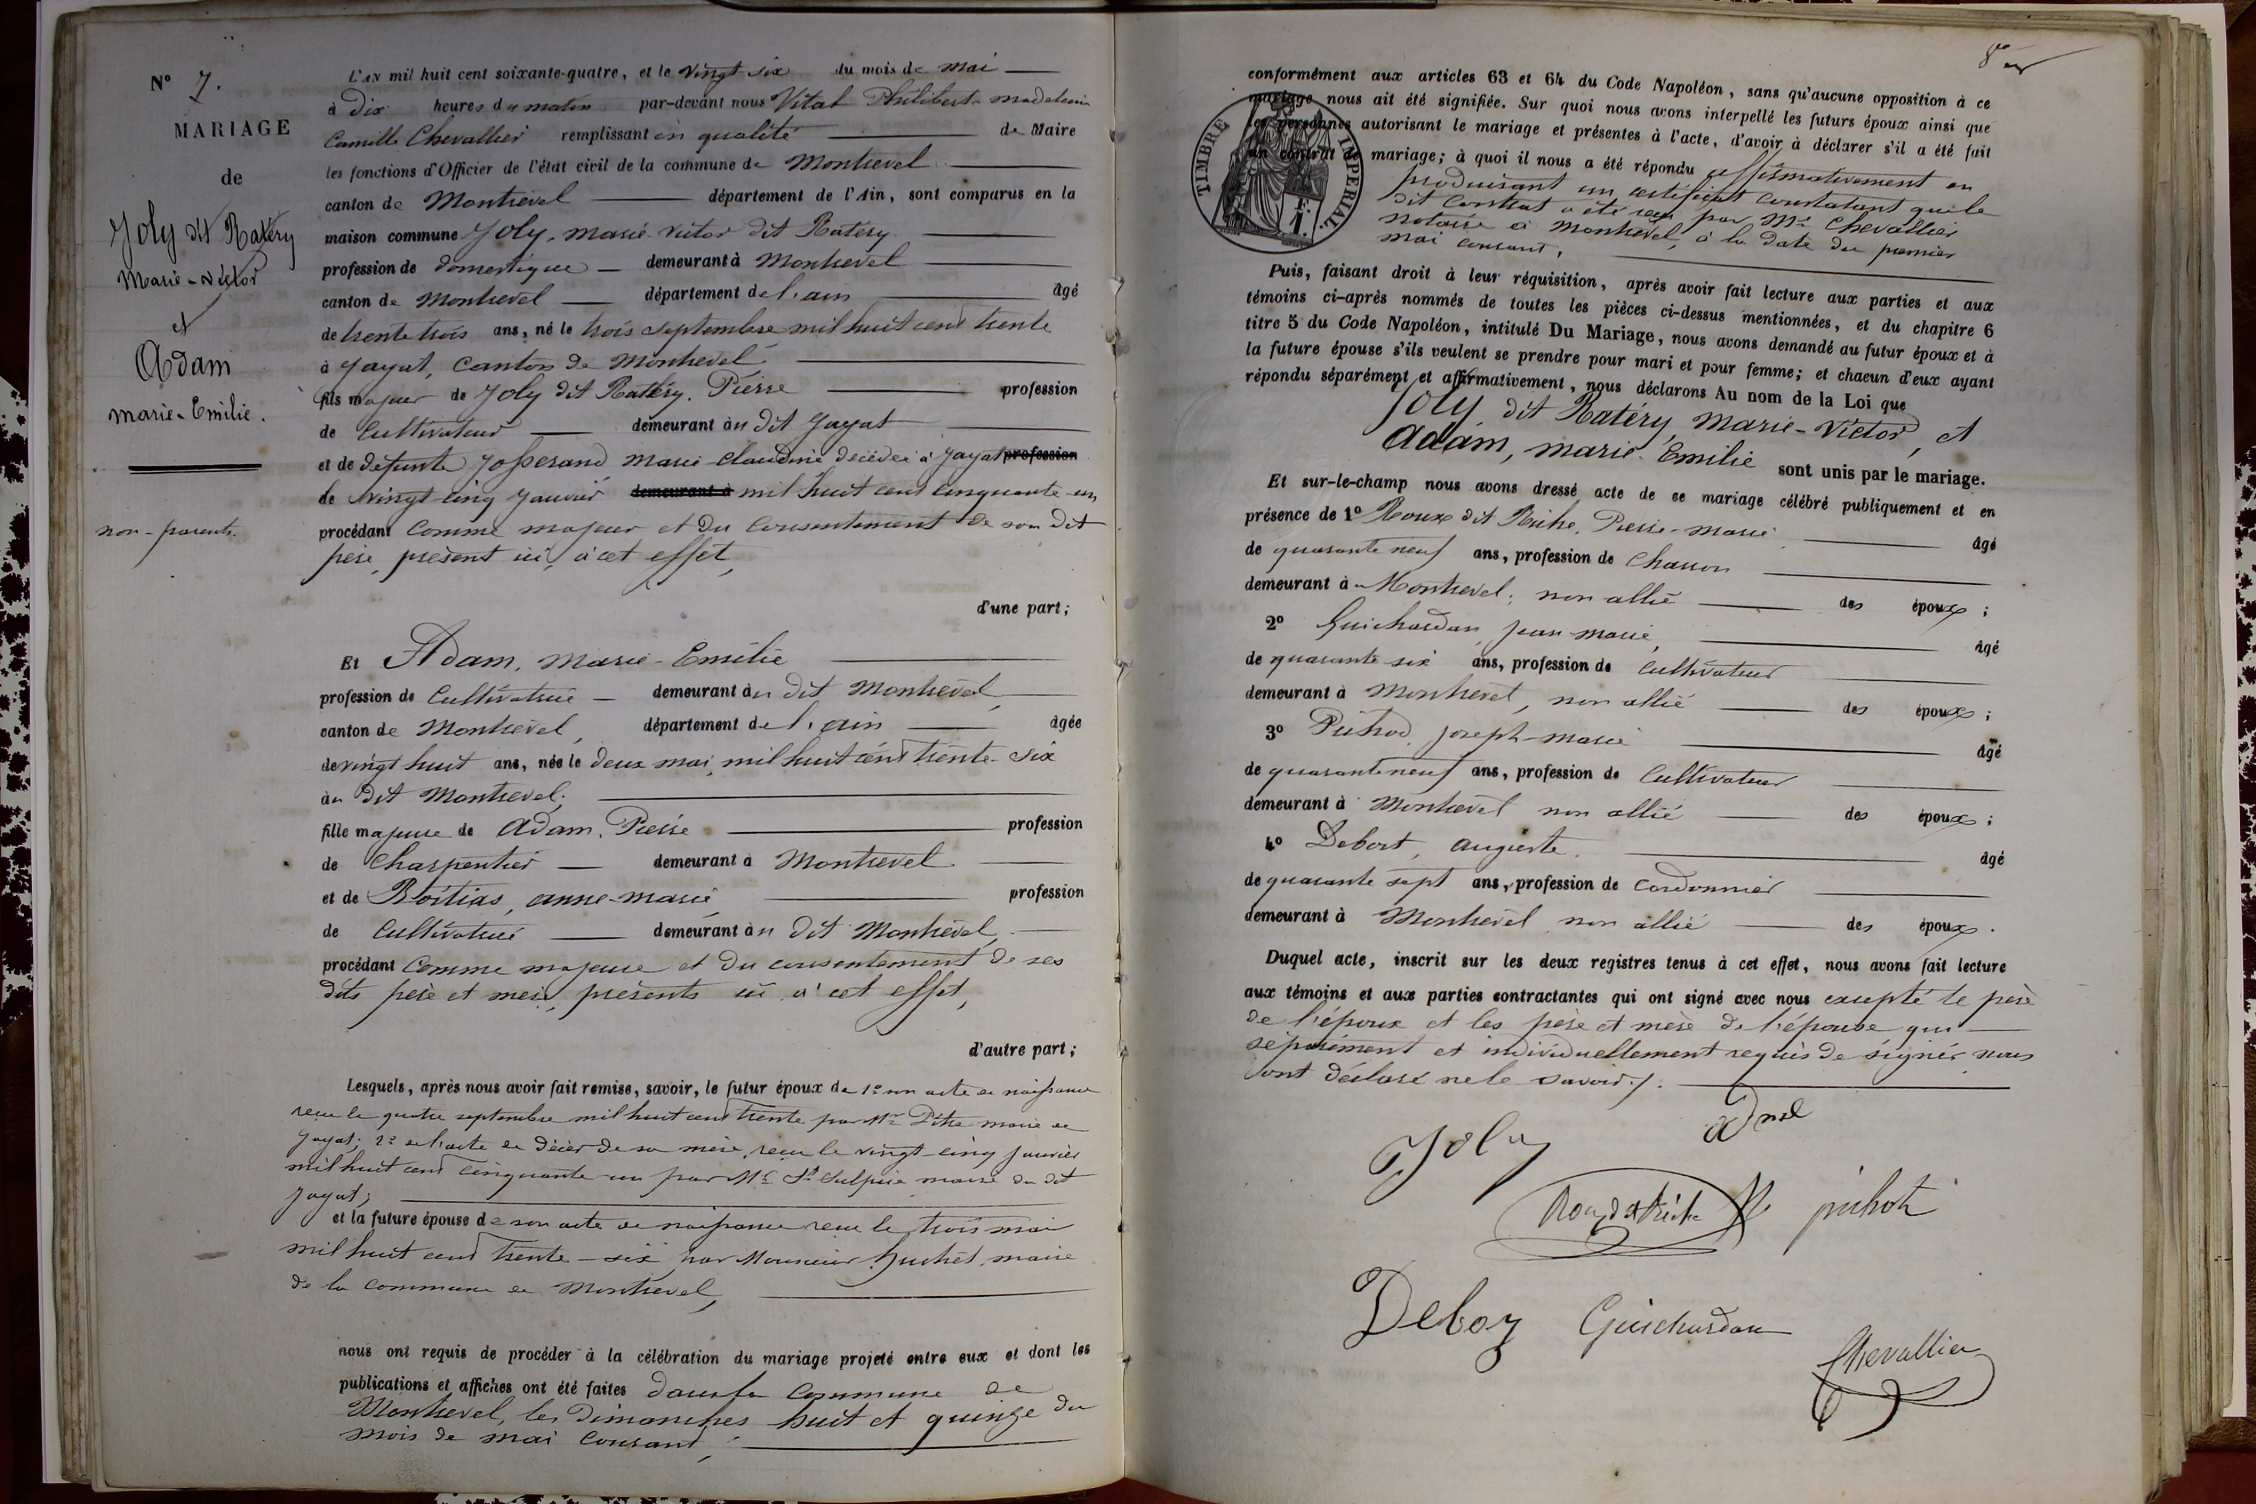 N° 7.
MARIAGE
de
Joly dit Ratéry
Marie-Victor
et
Adam
marie-Emilie.
non-parents.
L'AN mil huit cent soixante-quatre, et le vingt six du mois de mai
à dix heures du matin par-devant nous Vital Philibert madelain
Camille Chevallier remplissant en qualité de Maire
les fonctions d'Officier de l'état civil de la commune de Montrevel
canton de Montrevel département de l'Ain, sont comparus en la
maison commune Joly, marie victor dit Ratéry
profession de domestique demeurant à Montrevel
canton de Montrevel département de l'ain âgé
de trente trois ans, né le trois septembre mil huit cent trente
à Jayat, canton de Montrevel
fils majeur de Joly dit Ratéry, Pierre profession
de Cultivateur demeurant au dit Jayat
et de défunte Josserand marie-claudine décédée à Jayat profession
de vingt cinq janvier demeurant à mil huit cent cinquante-un
procédant comme majeur et du consentement de son dit
père, présent ici, à cet effet,
d'une part;
Et Adam, marie-Emilie
profession de Cultivatrice demeurant au dit Montrevel,
canton de Montrevel, département de l'ain âgée
de vingt huit ans, née le deux mai, mil huit cent trente-six
au dit Montrevel;
fille majeure de Adam, Pierre profession
de Charpentier demeurant à Montrevel
et de Roitias, anne-marie profession
de Cultivatrice demeurant au dit Montrevel,
procédant comme majeure et du consentement de ses
dits père et mère, présents ici, à cet effet,
d'autre part;
Lesquels, après nous avoir fait remise, savoir, le futur époux de 1° son acte de naissance
reçu le quatre septembre mil huit cent trente par Mr Pitre maire de
Jayat; 2° de l'acte de décès de sa mère, reçu le vingt-cinq janvier
mil huit cent cinquante-un par Mr St Sulpice maire du dit
Jayat;
et la future épouse de son acte de naissance reçu le trois mai
mil huit cent trente-six par Monsieur Huchet, maire
de la commune de Montrevel,
nous ont requis de procéder à la célébration du mariage projeté entre eux et dont les
publications et affiches ont été faites dans la commune de
Montrevel, les Dimanches huit et quinze du
mois de mai courant,
8
conformément aux articles 63 et 64 du Code Napoléon, sans qu'aucune opposition à ce
mariage nous ait été signifiée. Sur quoi nous avons interpellé les futurs époux ainsi que
les personnes autorisant le mariage et présentes à l'acte, d'avoir à déclarer s'il a été fait
un contrat de mariage; à quoi il nous a été répondu affirmativement en
produisant un certificat constatant que le
dit Contrat a été reçu par Mr Chevallier
notaire à Montrevel, à la date du premier
mai courant,
TIMBRE IMPERIAL
F. 1.
Puis, faisant droit à leur réquisition, après avoir fait lecture aux parties et aux
témoins ci-après nommés de toutes les pièces ci-dessus mentionnées, et du chapitre 6
titre 5 du Code Napoléon, intitulé Du Mariage, nous avons demandé au futur époux et à
la future épouse s'ils veulent se prendre pour mari et pour femme; et chacun d'eux ayant
répondu séparément et affirmativement, nous déclarons Au nom de la Loi que
Joly dit Ratéry, Marie-Victor, et
Adam, marie-Emilie sont unis par le mariage.
Et sur-le-champ nous avons dressé acte de ce mariage célébré publiquement et en
présence de 1° Roux dit Riche, Pierre-marie âgé
de quarante neuf ans, profession de Charron
demeurant à Montrevel; non allié des époux;
2° Guichardan, Jean-marie, âgé
de quarante six ans, profession de Cultivateur
demeurant à Montrevel, non allié des époux;
3° Pichod, joseph-marie âgé
de quarante neuf ans, profession de Cultivateur
demeurant à Montrevel non allié des époux;
4° Debost, auguste. âgé
de quarante sept ans, profession de cordonnier
demeurant à Montrevel non allié des époux.
Duquel acte, inscrit sur les deux registres tenus à cet effet, nous avons fait lecture
aux témoins et aux parties contractantes qui ont signé avec nous excepté le père
de l'époux et les père et mère de l'épouse qui
séparément et individuellement requis de signer nous
ont déclaré ne le savoir.
Joly
Roux dit Riche
pichot
Deboz
Guichardan
Chevallier